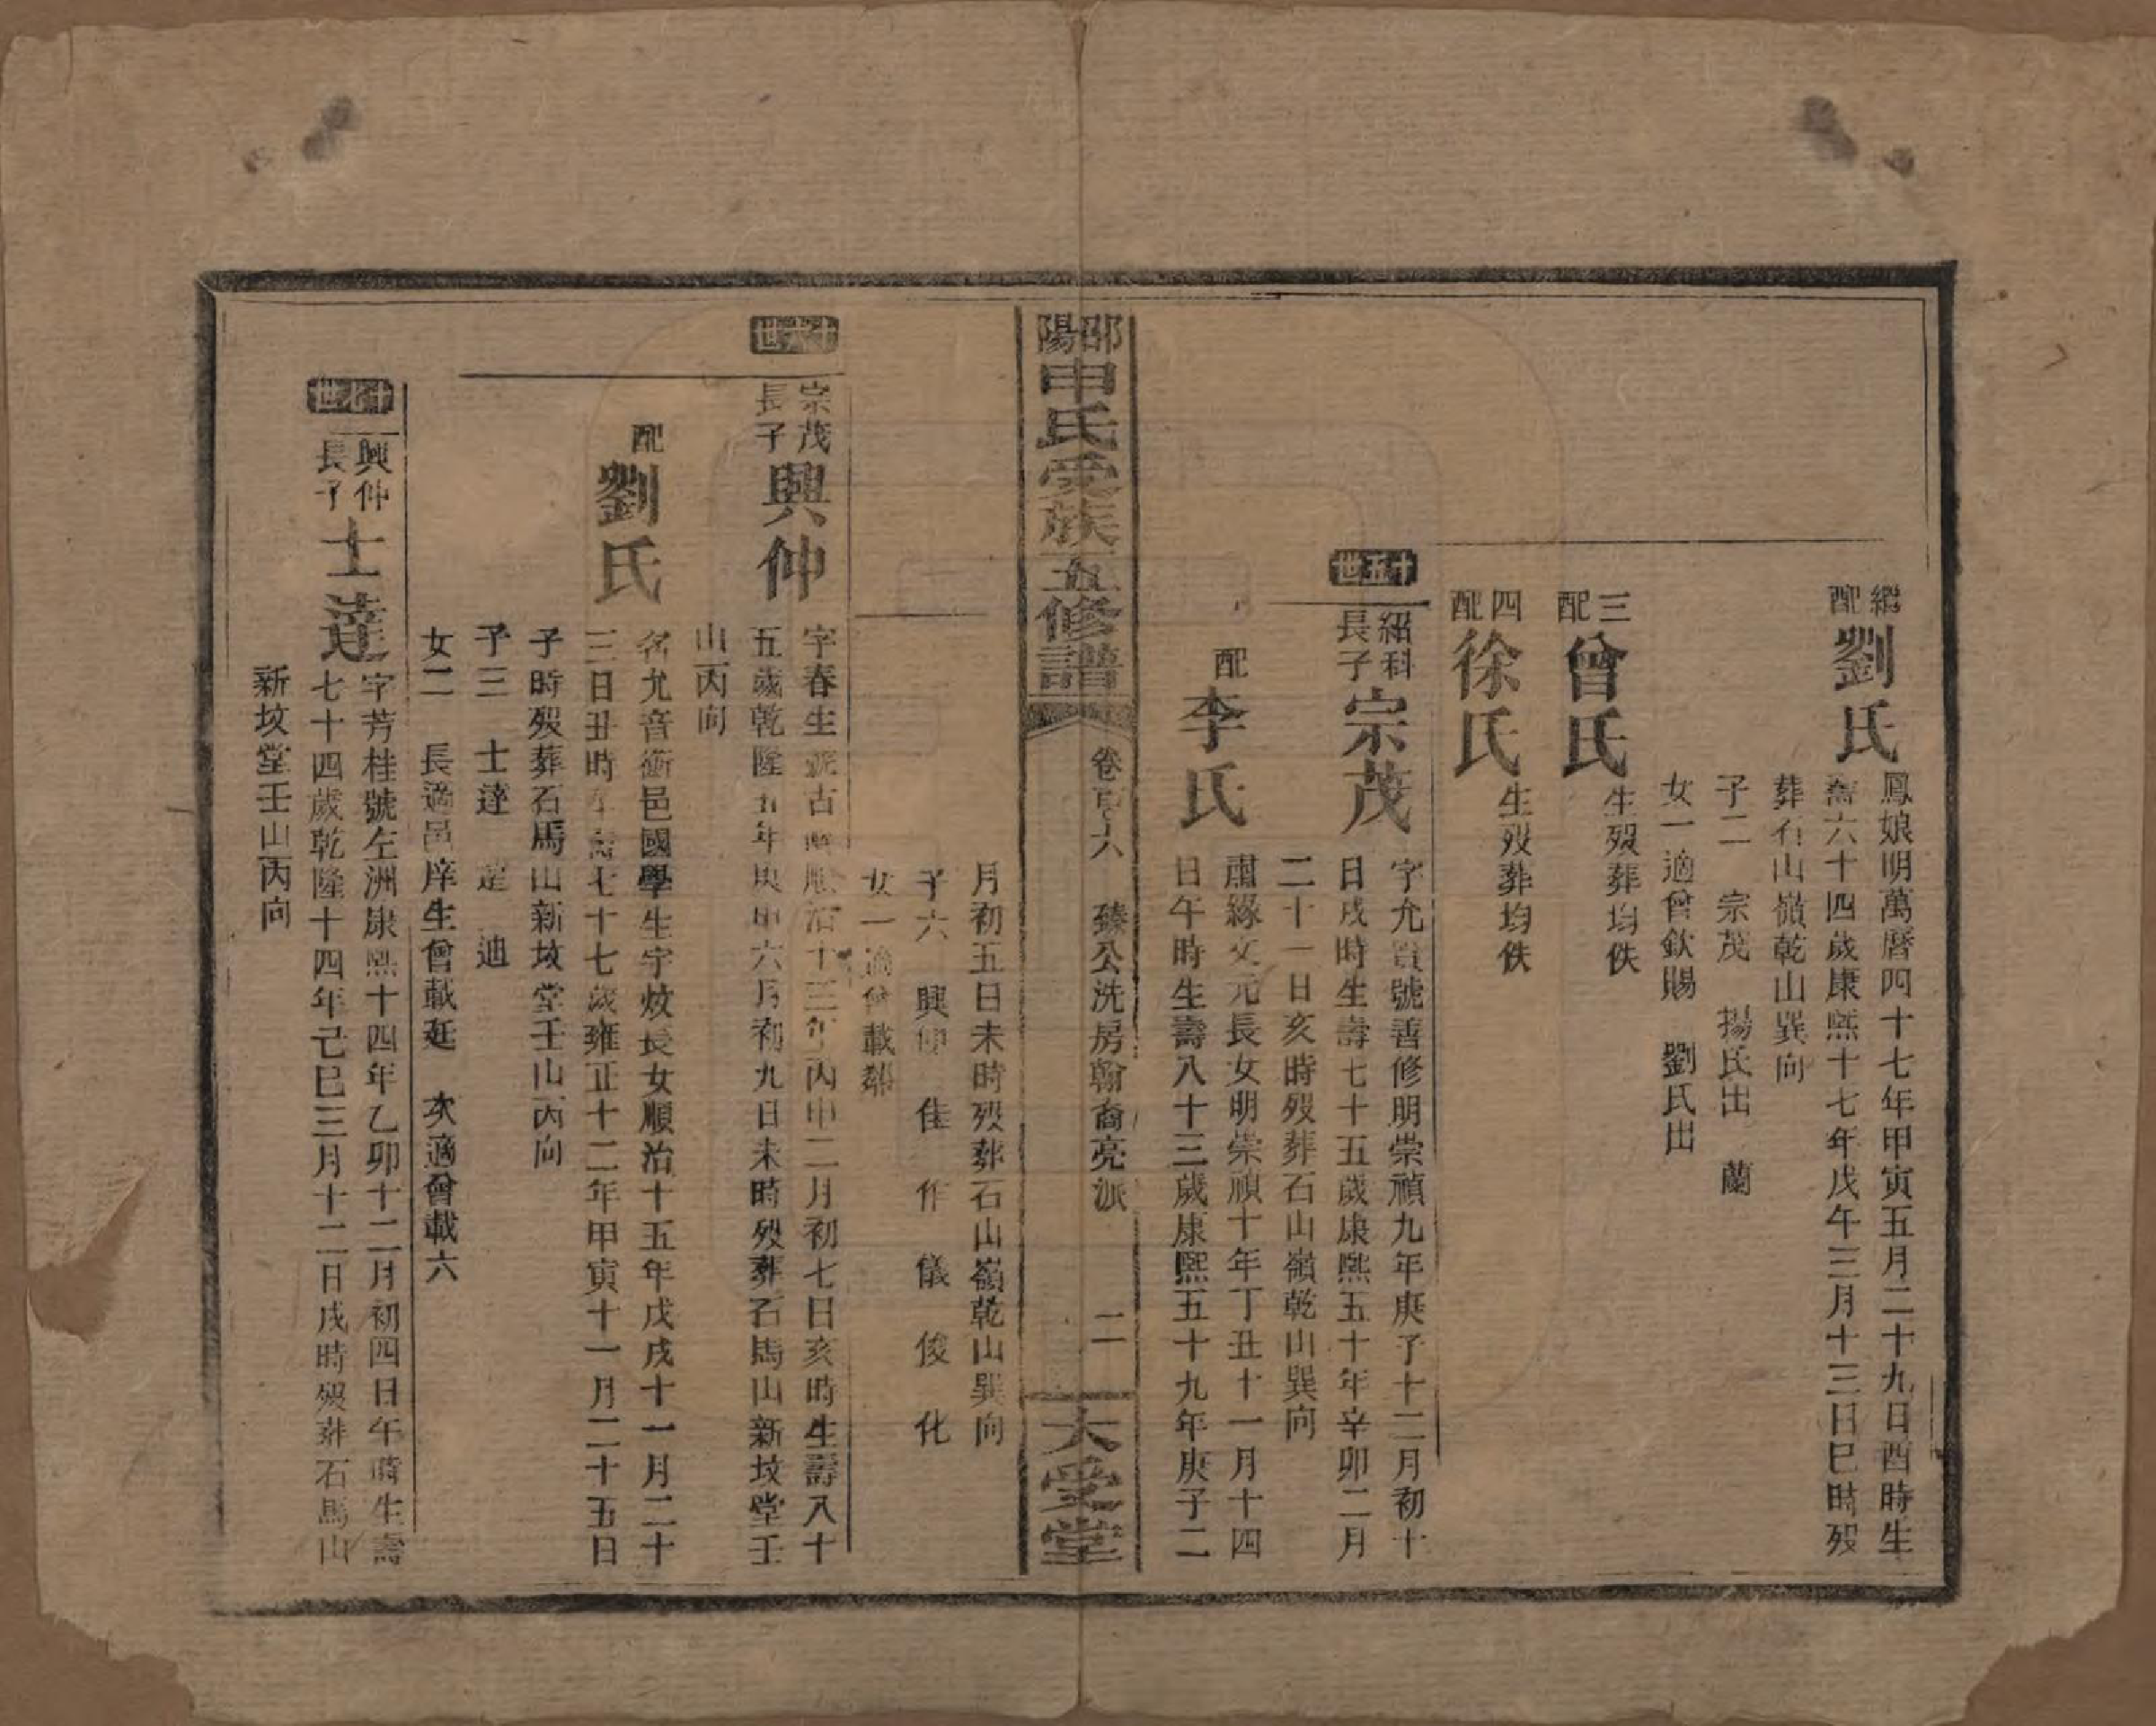 繼配劉氏
鳳娘明萬曆四十七年甲寅五月二十九日酉時生
壽六十四歲康熙十七年戊午三月十三日巳時歿
葬石山嶺乾山巽向
子二　宗茂　揚氏出　蘭
女一適曾欽賜　劉氏出
三配曾氏
生歿葬均佚
四配徐氏
生歿葬均佚
十五世
紹科長子宗茂
字允號善修明崇禎九年庚子十二月初十
日戌時生壽七十五歲康熙五十年辛卯二月
二十一日亥時歿葬石山嶺乾山巽向
配李氏
肅緣文元長女明崇禎十年丁丑十一月十四
日午時生壽八十三歲康熙五十九年庚子二
邵陽申氏受族五修譜
卷　六　臻公洗房翰裔亮派　二
大受堂
月初五日未時歿葬石山嶺乾山巽向
子六　興仲　佳　作　儀　俊　化
女一適曾載
十六世
宗茂長子興仲
字春生號古順治十三年丙申二月初七日亥時生壽八十
五歲乾隆五年庚申六月初九日未時歿葬石馬山新坟堂壬
山丙向
配劉氏
名允音衝邑國學生字炆長女順治十五年戊戌十一月二十
三日丑時生壽七十七歲雍正十二年甲寅十一月二十五日
子時歿葬石馬山新坟堂壬山丙向
子三　士達　起　迪
女二　長適邑庠生曾載廷　次適曾載六
十七世
興仲長子士達
字芳桂號左洲康熙十四年乙卯十二月初四日午時生壽
七十四歲乾隆十四年己巳三月十二日戌時歿葬石馬山
新坟堂壬山丙向